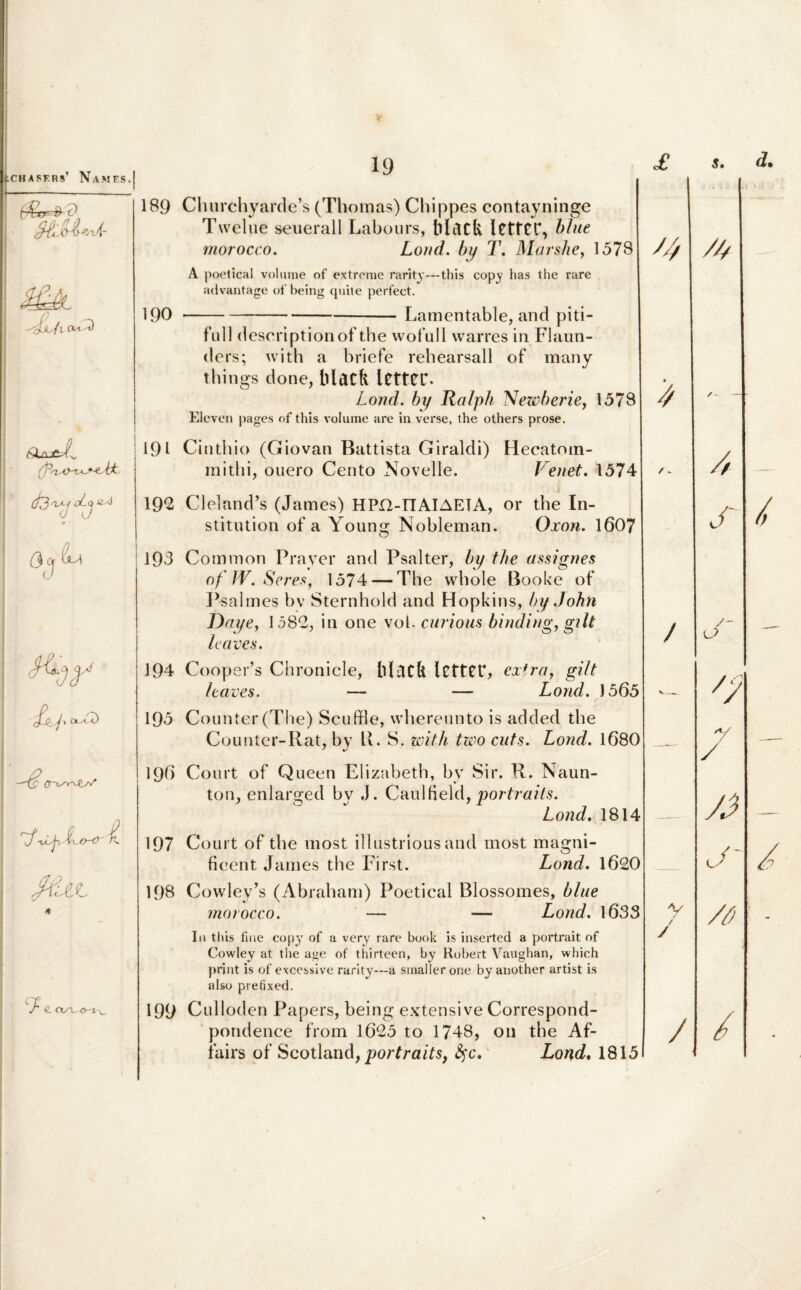 19
CHASERS' NAMES.
£ s. d.
189 Churchyarde's (Thomas) Chippes contayninge
Twelue seuerall Labours, black letter, blue
morocco. Lond. by T. Marshe, 1578
14 14
A poetical volume of extreme rarity---this copy has the rare
advantage of being quite perfect.
190 ——— Lamentable, and piti-
full description of the wofull warres in Flaun-
ders; with a briefe rehearsall of many
things done, black letter.
Lond. by Ralph Newberie, 1578
4
Eleven pages of this volume are in verse, the others prose.
191 Cinthio (Giovan Battista Giraldi) Hecatom-
mithi, ouero Cento Novelle. Venet. 1574
4
192 Cleland's (James) ΗΡΩ-ΠΑΙΔΕΙΑ, or the In-
stitution of a Young Nobleman. Oxon. 1607
5 6
193 Common Prayer and Psalter, by the assignes
of W. Seres, 1574—The whole Booke of
Psalmes by Sternhold and Hopkins, by John
Daye, 1582, in one vol. curious binding, gilt
leaves.
1 5 —
194 Cooper's Chronicle, black letter, extra, gilt
leaves. — — Lond. 1565
17
195 Counter (The) Scuffle, whereunto is added the
Counter-Rat, by R. S. with two cuts. Lond. 1680
7 —
196 Court of Queen Elizabeth, by Sir. R. Naun-
ton, enlarged by J. Caulfield, portraits.
Lond. 1814
13 —
197 Court of the most illustrious and most magni-
ficent James the First. Lond. 1620
5 6
198 Cowley's (Abraham) Poetical Blossomes, blue
morocco. — — Lond. 1633
7 10 -
In this fine copy of a very rare book is inserted a portrait of
Cowley at the age of thirteen, by Robert Vaughan, which
print is of excessive rarity---a smaller one by another artist is
also prefixed.
199 Culloden Papers, being extensive Correspond-
pondence from 1625 to 1748, on the Af-
fairs of Scotland, portraits, &c. Lond. 1815
1 6 -